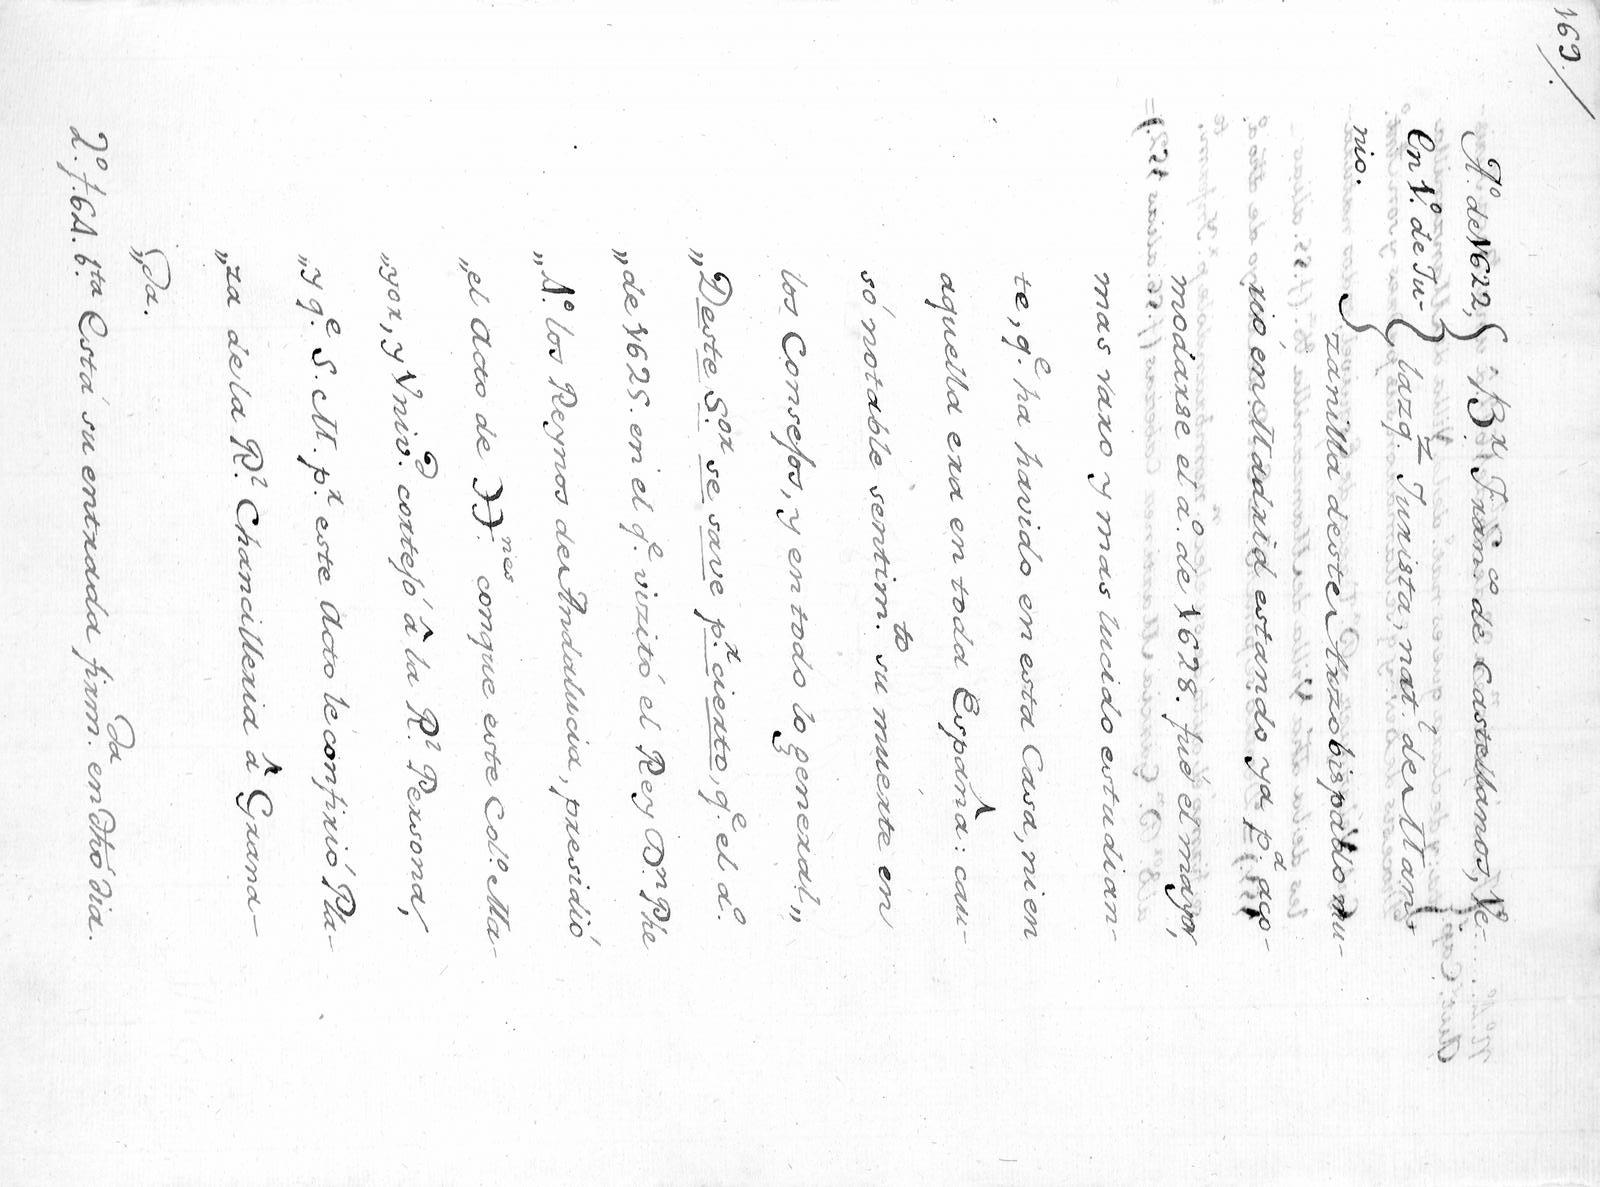 169./
A.º de 1622, { "Bx. Franᶜᵒ. de Castellanos, Ve-
en 1.º de Ju- { lazqᶻ. Jurista, natˡ. de Man-
nio. } zanilla deste Arzobispado mu-
rió en Madrid estando ya pᵃ. aco-
modarse el a.º de 1628. fué el mayor,
mas raxo y mas lucido estudian-
te, qᵉ. ha havido en esta Casa, ni en
aquella era en toda España: cau-
só notable sentimᵗᵒ. su muerte en
los Consejos, y en todo lo general„
„Deste Sᵒʳ. se save pʳ. cierto, qᵉ. el aº.
„de 1625. en el qᵉ. vizitó el Rey Dⁿ Phe
„4.º los Reynos de Andalucia, presidió
„el Acto de DDⁿᵉˢ. conque este Colº. Ma-
„yor, y Univᵈ. cortejó á la Rˡ. Persona,
„y qᵉ. S. M. pʳ. este Acto le confirió Pla-
„za de la Rˡ. Chancilleria á Grana-
„da.
2.º f. 64. bᵗᵃ Está su entrada firmᵈᵃ. en dhó dia.